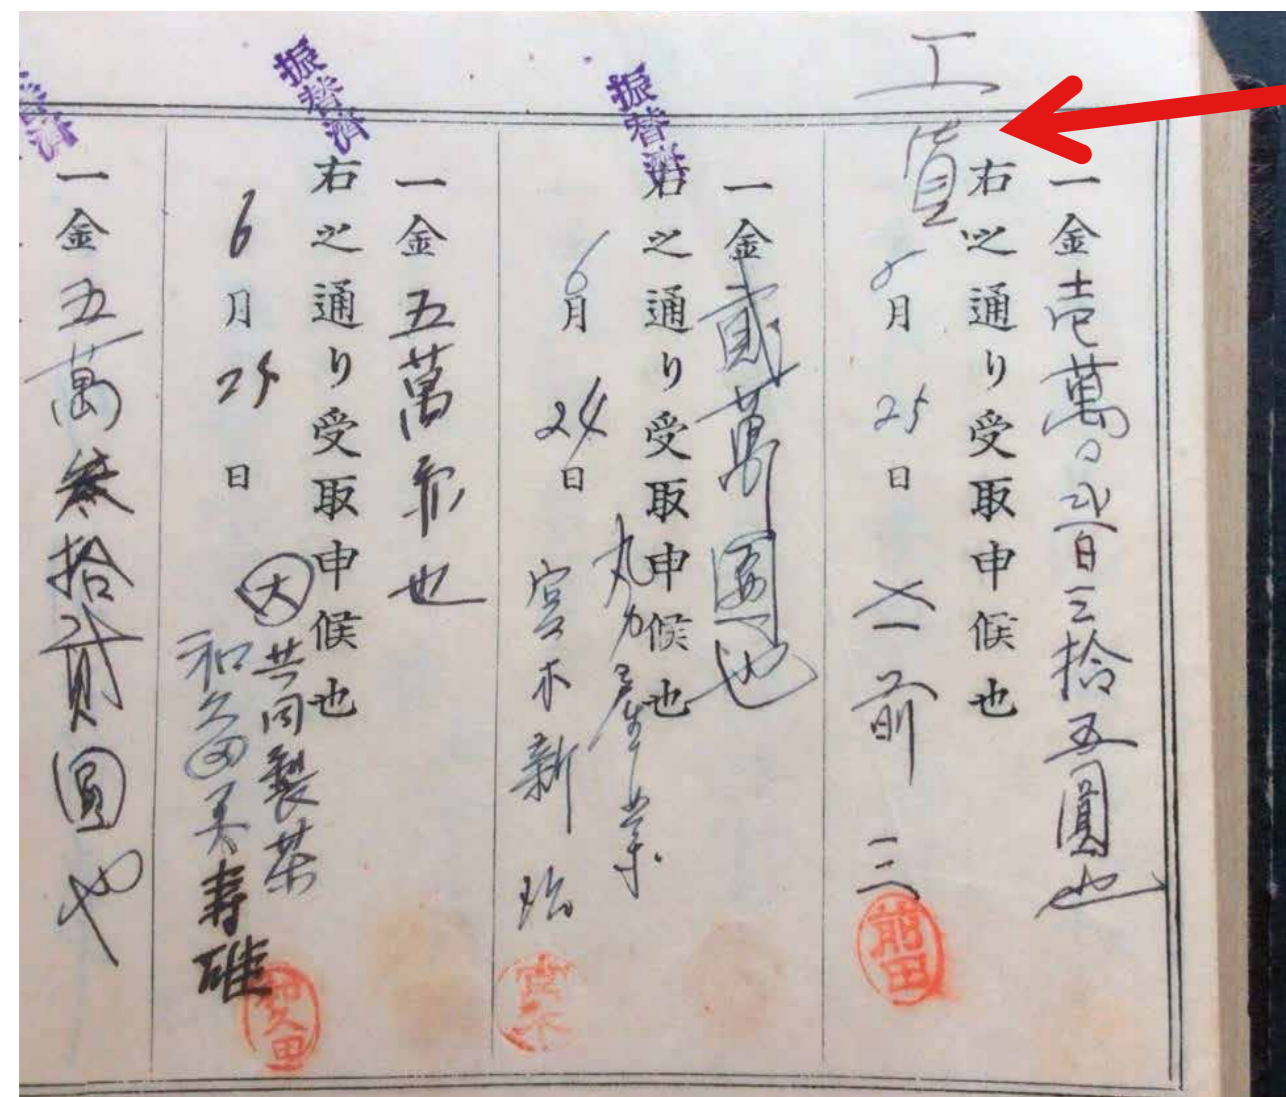 工賃
一金壱萬〇弐百三拾五圓也
右之通り受取申候也
月25日
前田
振替済
一金貳萬圓也
右之通り受取申候也
6月24日
丸力産業
宮木新治
宮木
振替済
一金五萬円也
右之通り受取申候也
6月25日
大 共同製茶
和久田美寿雄
和久田
一金五萬参拾貳圓也